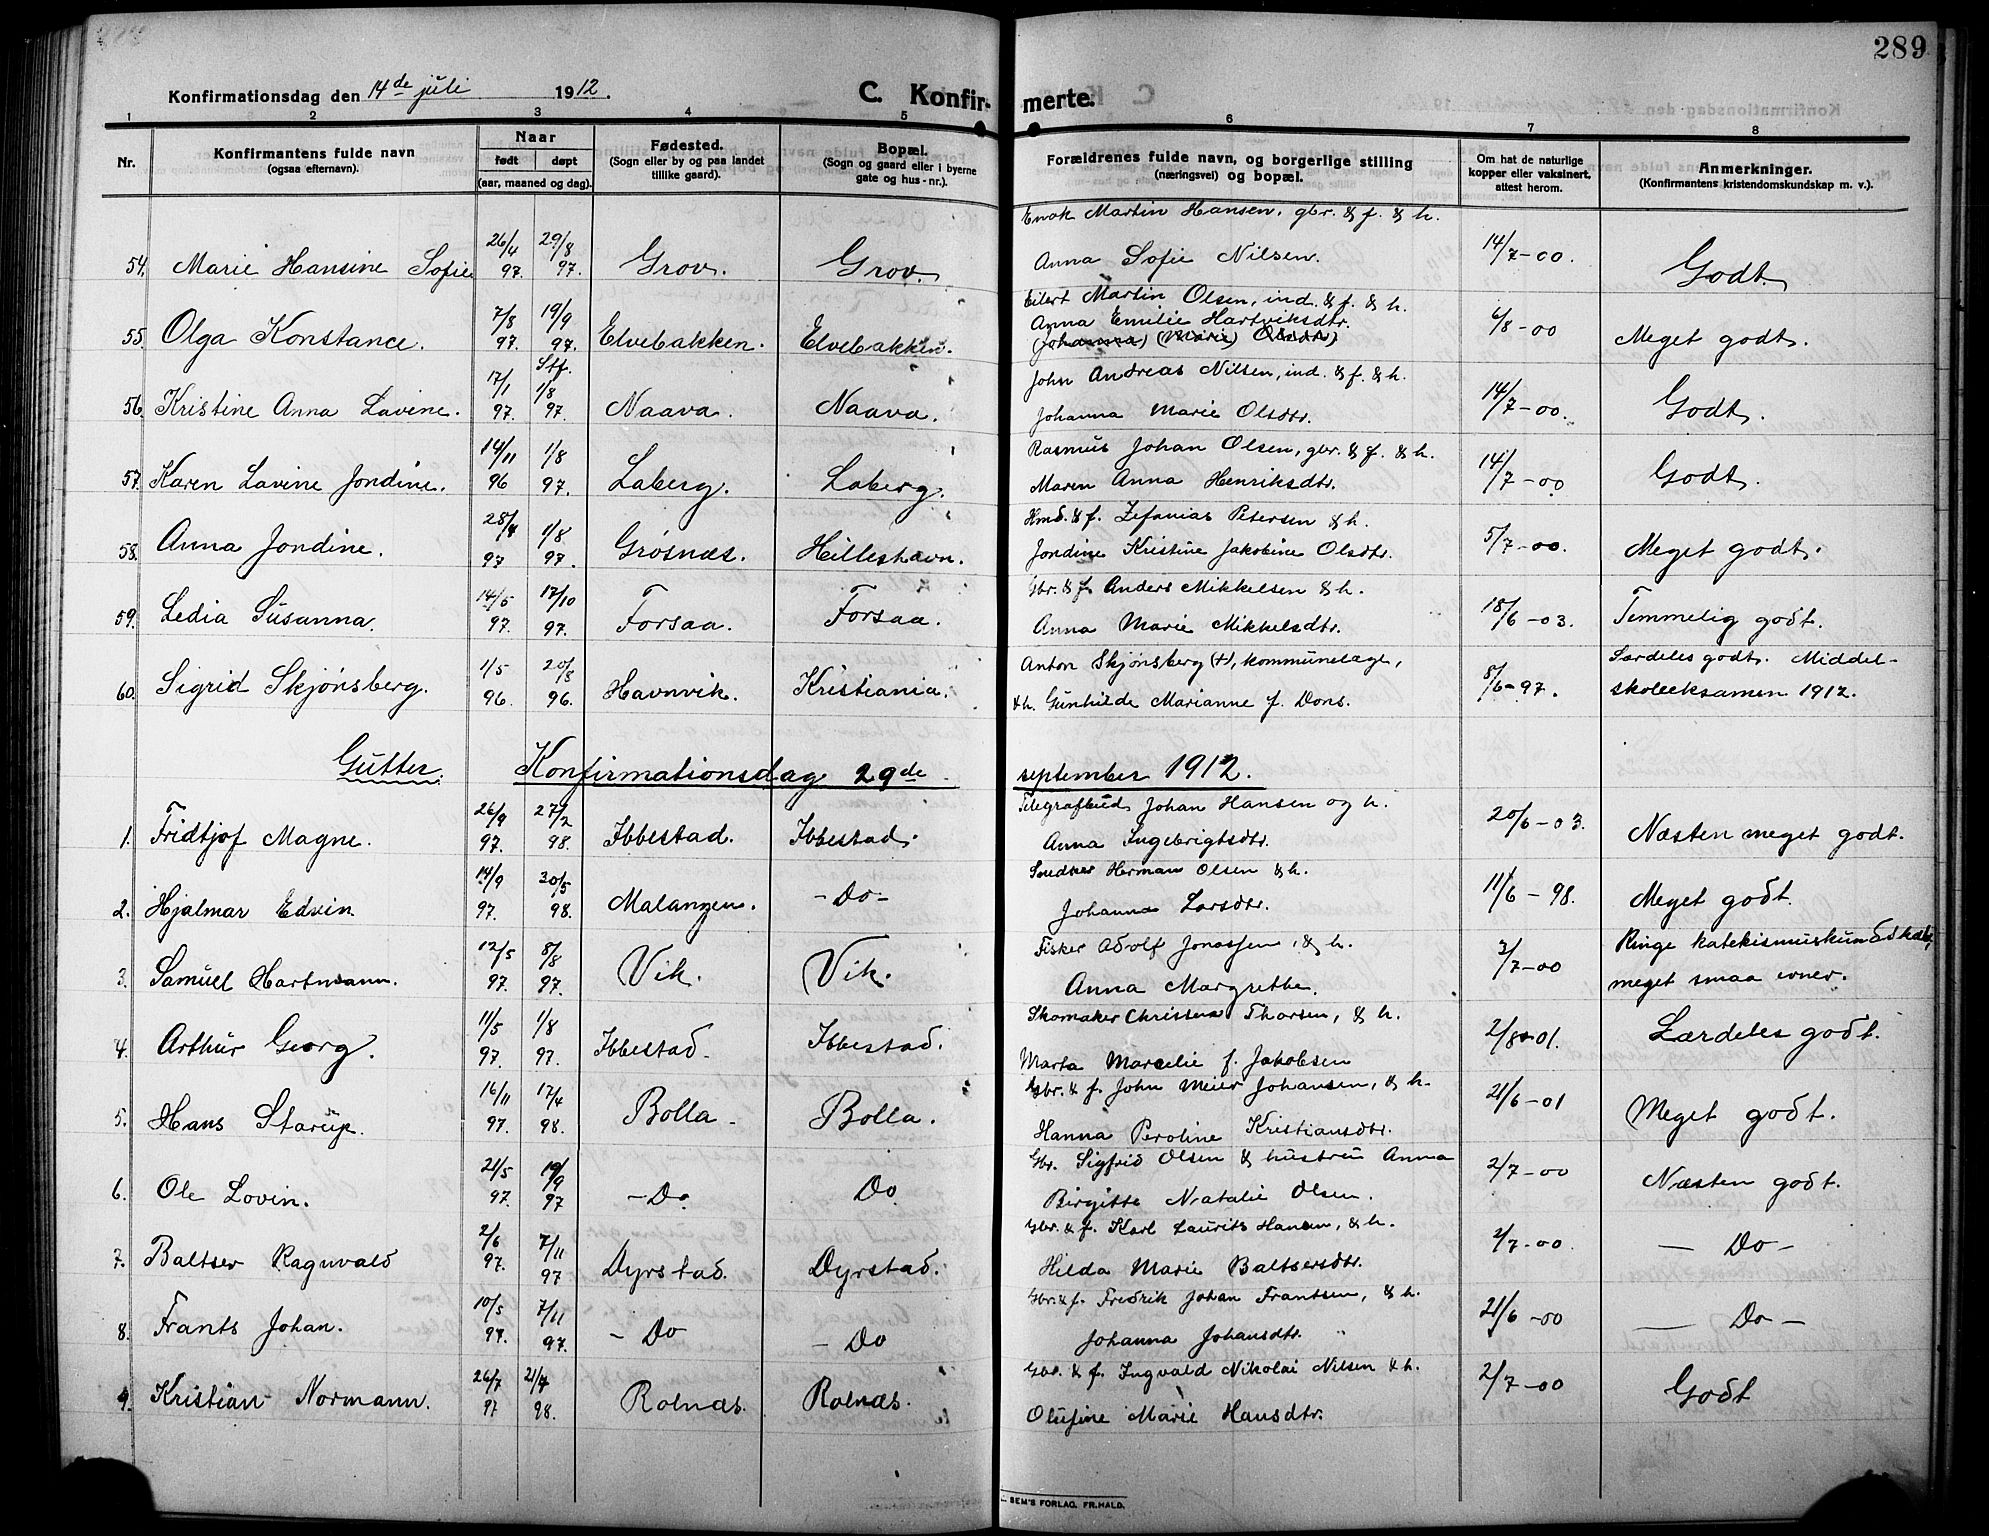 289
Konfirmationsdag den 14de juli 1912. C. Konfir- merte.
1 2 3 4 5 6 7 8
Nr. Konfirmantens fulde navn (ogsaa efternavn). Naar født døpt (aar, maaned og dag). Fødested. (Sogn eller by og paa landet tillike gaard). Bopæl. (Sogn og gaard eller i byerne gate og hus-nr.). Forældrenes fulde navn, og borgerlige stilling (næringsvei) og bopæl. Om hat de naturlige kopper eller vaksinert, attest herom. Anmerkninger. (Konfirmantens kristendomskundskap m. v.).
Enok Martin Hansen, gbr. & f. & h.
54. Marie Hansine Sofie 26/4 97. 29/8 97. Grov. Grov. Anna Sofie Nilsen. 14/7-00. Godt.
Eilert Martin Olsen, ind. & f. & h.
55. Olga Konstance. 7/8 97. 19/9 97. Elvebakken. Elvebakken. Anna Emilie Hartviksdtr. 6/8-00 Meget godt.
(Johanna) (Marie) Olsdtr)
Stf.
John Andreas Nilsen, ind. & f. & h.
56. Kristine Anna Lavine. 17/1 97. 1/8 97. Naava. Naava. Johanna Marie Olsdtr. 14/7-00. Godt.
Rasmus Johan Olsen, gbr. & f. & h.
57. Karen Lavine Jondine. 14/11 96 1/8 97. Laberg. Laberg. Maren Anna Henriksdtr. 14/7-00 Godt.
Hmd. & f. Zefanias Petersen & h.
58. Anna Jondine. 28/4 97 1/8 97. Grøsnæs. Hilleshavn. Jondine Kristine Jakobine Olsdtr. 5/7-00. Meget godt.
Gbr. & f. Anders Mikkelsen & h.
59. Ledia Susanna. 14/5 97. 17/10 97. Forsaa. Forsaa. Anna Marie Mikkelsdtr. 18/6-03. Temmelig godt.
Anton Skjønsberg (+), kommunelæge, Særdeles godt. Middel-
60. Sigrid Skjønsberg. 1/5 96. 20/8 96. Havnvik. Kristiania. & h. Gunhilde Marianne f. Dons. 8/6-97. skoleeksamen 1912.
Gutter. Konfirmationsdag 29de september 1912.
Telegrafbud Johan Hansen og h.
1. Fridtjof Magne. 26/9 97. 27/2 98. Ibbestad. Ibbestad. Anna Ingebrigtsdtr. 20/6-03. Næsten meget godt.
Snedker Herman Olsen & h.
2. Hjalmar Edvin. 14/9 97. 30/5 98. Malangen. - Do - Johanna Larsdtr. 11/6-98. Meget godt.
Fisker Adolf Jonassen, & h. Ringe katekismuskundskab,
3. Samuel Hartmann. 12/5 97. 8/8 97. Vik. Vik. Anna Margrethe. 3/7-00 meget smaa evner.
Skomaker Christen Thorsen, & h.
4. Arthur Georg. 11/5 97. 1/8 97. Ibbestad. Ibbestad. Marta Marcelie f. Jakobsen 2/8-01. Særdeles godt.
Gbr. & f. John Meier Johansen, & h.
5. Hans Starup. 16/11 97. 17/4 98. Bolla. Bolla. Hanna Peroline Kristiansdtr. 21/6-01 Meget godt.
Gbr. Sigfrid Olsen & hustru Anna
6. Ole Lovin. 21/5 97. 19/9 97 - Do. Do Birgitte Natalie Olsen. 2/7-00 Næsten godt.
Gbr. & f. Karl Laurits Hansen, & h.
7. Baltser Ragnvald 2/6 97. 7/11 97 Dyrstad. Dyrstad. Hilda Marie Baltsersdtr. 2/7-00. - Do -
Gbr. & f. Fredrik Johan Frantsen, & h.
8. Frants Johan. 10/5 97. 7/11 97. - Do - Do Johanna Johansdtr. 21/6-00 - Do -
Gbr. & f. Ingvald Nikolai Nilsen & h.
9. Kristian Normann. 26/7 97 21/4 98. Rolnæs. Rolnæs. Olufine Marie Hansdtr. 2/7-00 Godt
SEM'S FORLAG. FR. HALD.